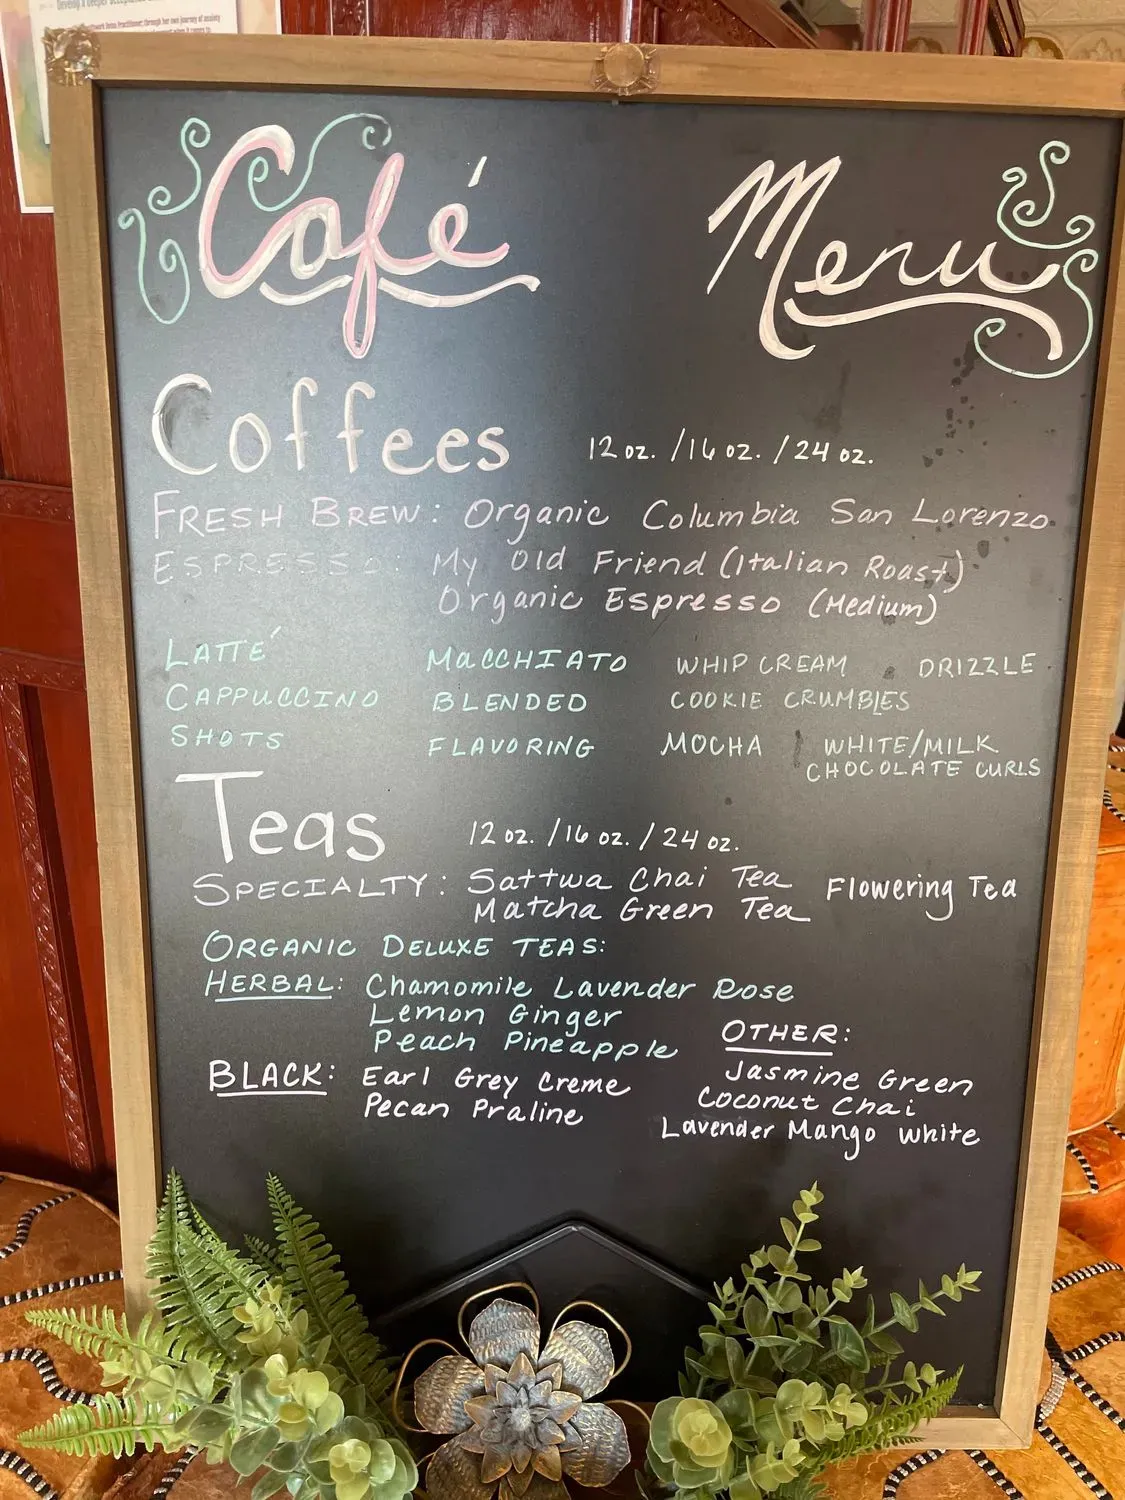 Develop a deeper
through her own journey of anxiety
Café Menu
Coffees 12 oz. / 16 oz. / 24 oz.
FRESH BREW: Organic Columbia San Lorenzo
ESPRESSO: My Old Friend (Italian Roast)
Organic Espresso (Medium)
LATTÉ MACCHIATO WHIP CREAM DRIZZLE
CAPPUCCINO BLENDED COOKIE CRUMBLES
SHOTS FLAVORING MOCHA WHITE/MILK
CHOCOLATE CURLS
Teas 12 oz. / 16 oz. / 24 oz.
SPECIALTY: Sattwa Chai Tea Flowering Tea
Matcha Green Tea
ORGANIC DELUXE TEAS:
HERBAL: Chamomile Lavender Rose
Lemon Ginger
Peach Pineapple
BLACK: Earl Grey Creme
Pecan Praline
OTHER:
Jasmine Green
Coconut Chai
Lavender Mango White